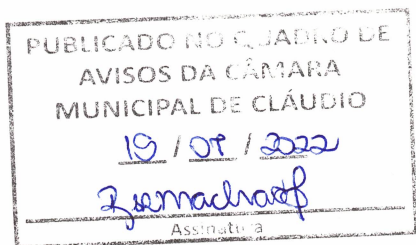 PUBLICADO NO QUADRO DE
AVISOS DA CÂMARA
MUNICIPAL DE CLÁUDIO
19 / 07 / 2022
Assinatura